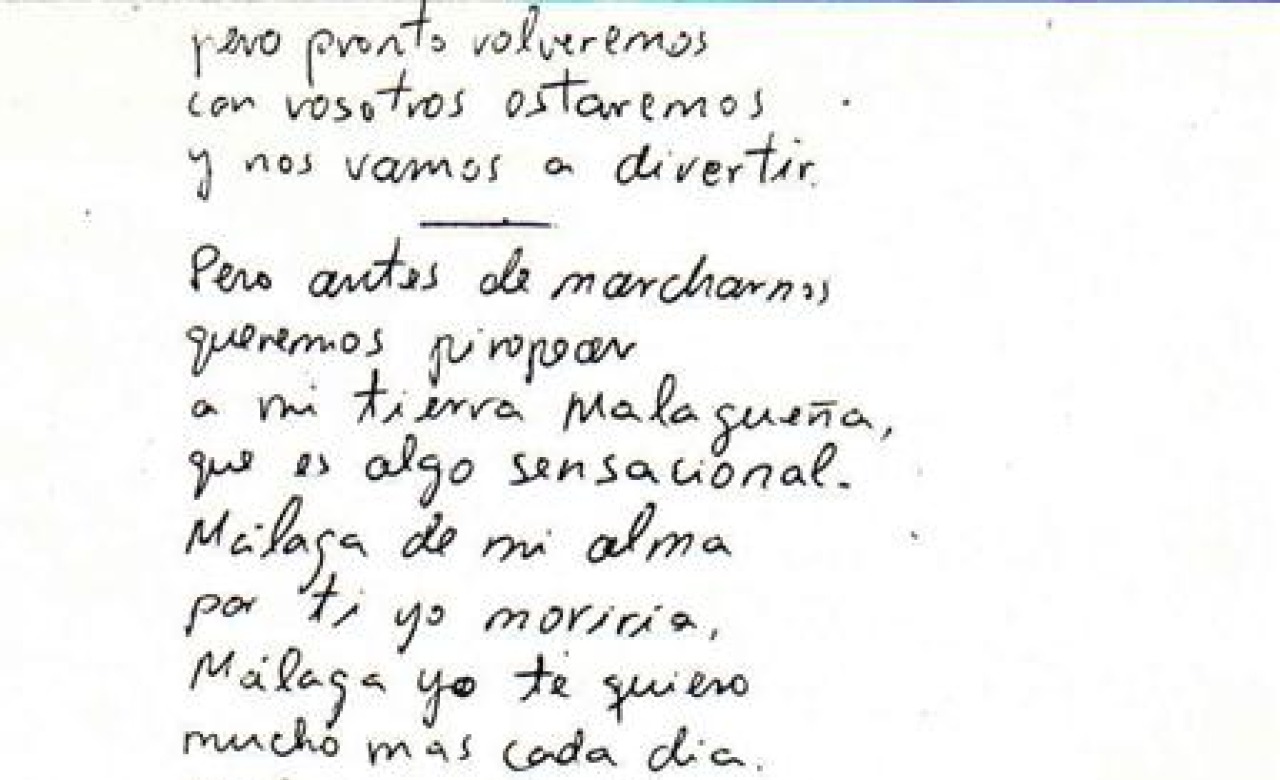 pero pronto volveremos
con vosotros estaremos
y nos vamos a divertir.
Pero antes de marcharnos
queremos piropear
a mi tierra Malagueña,
que es algo sensacional.
Málaga de mi alma
por ti yo moriría,
Málaga yo te quiero
mucho mas cada dia.